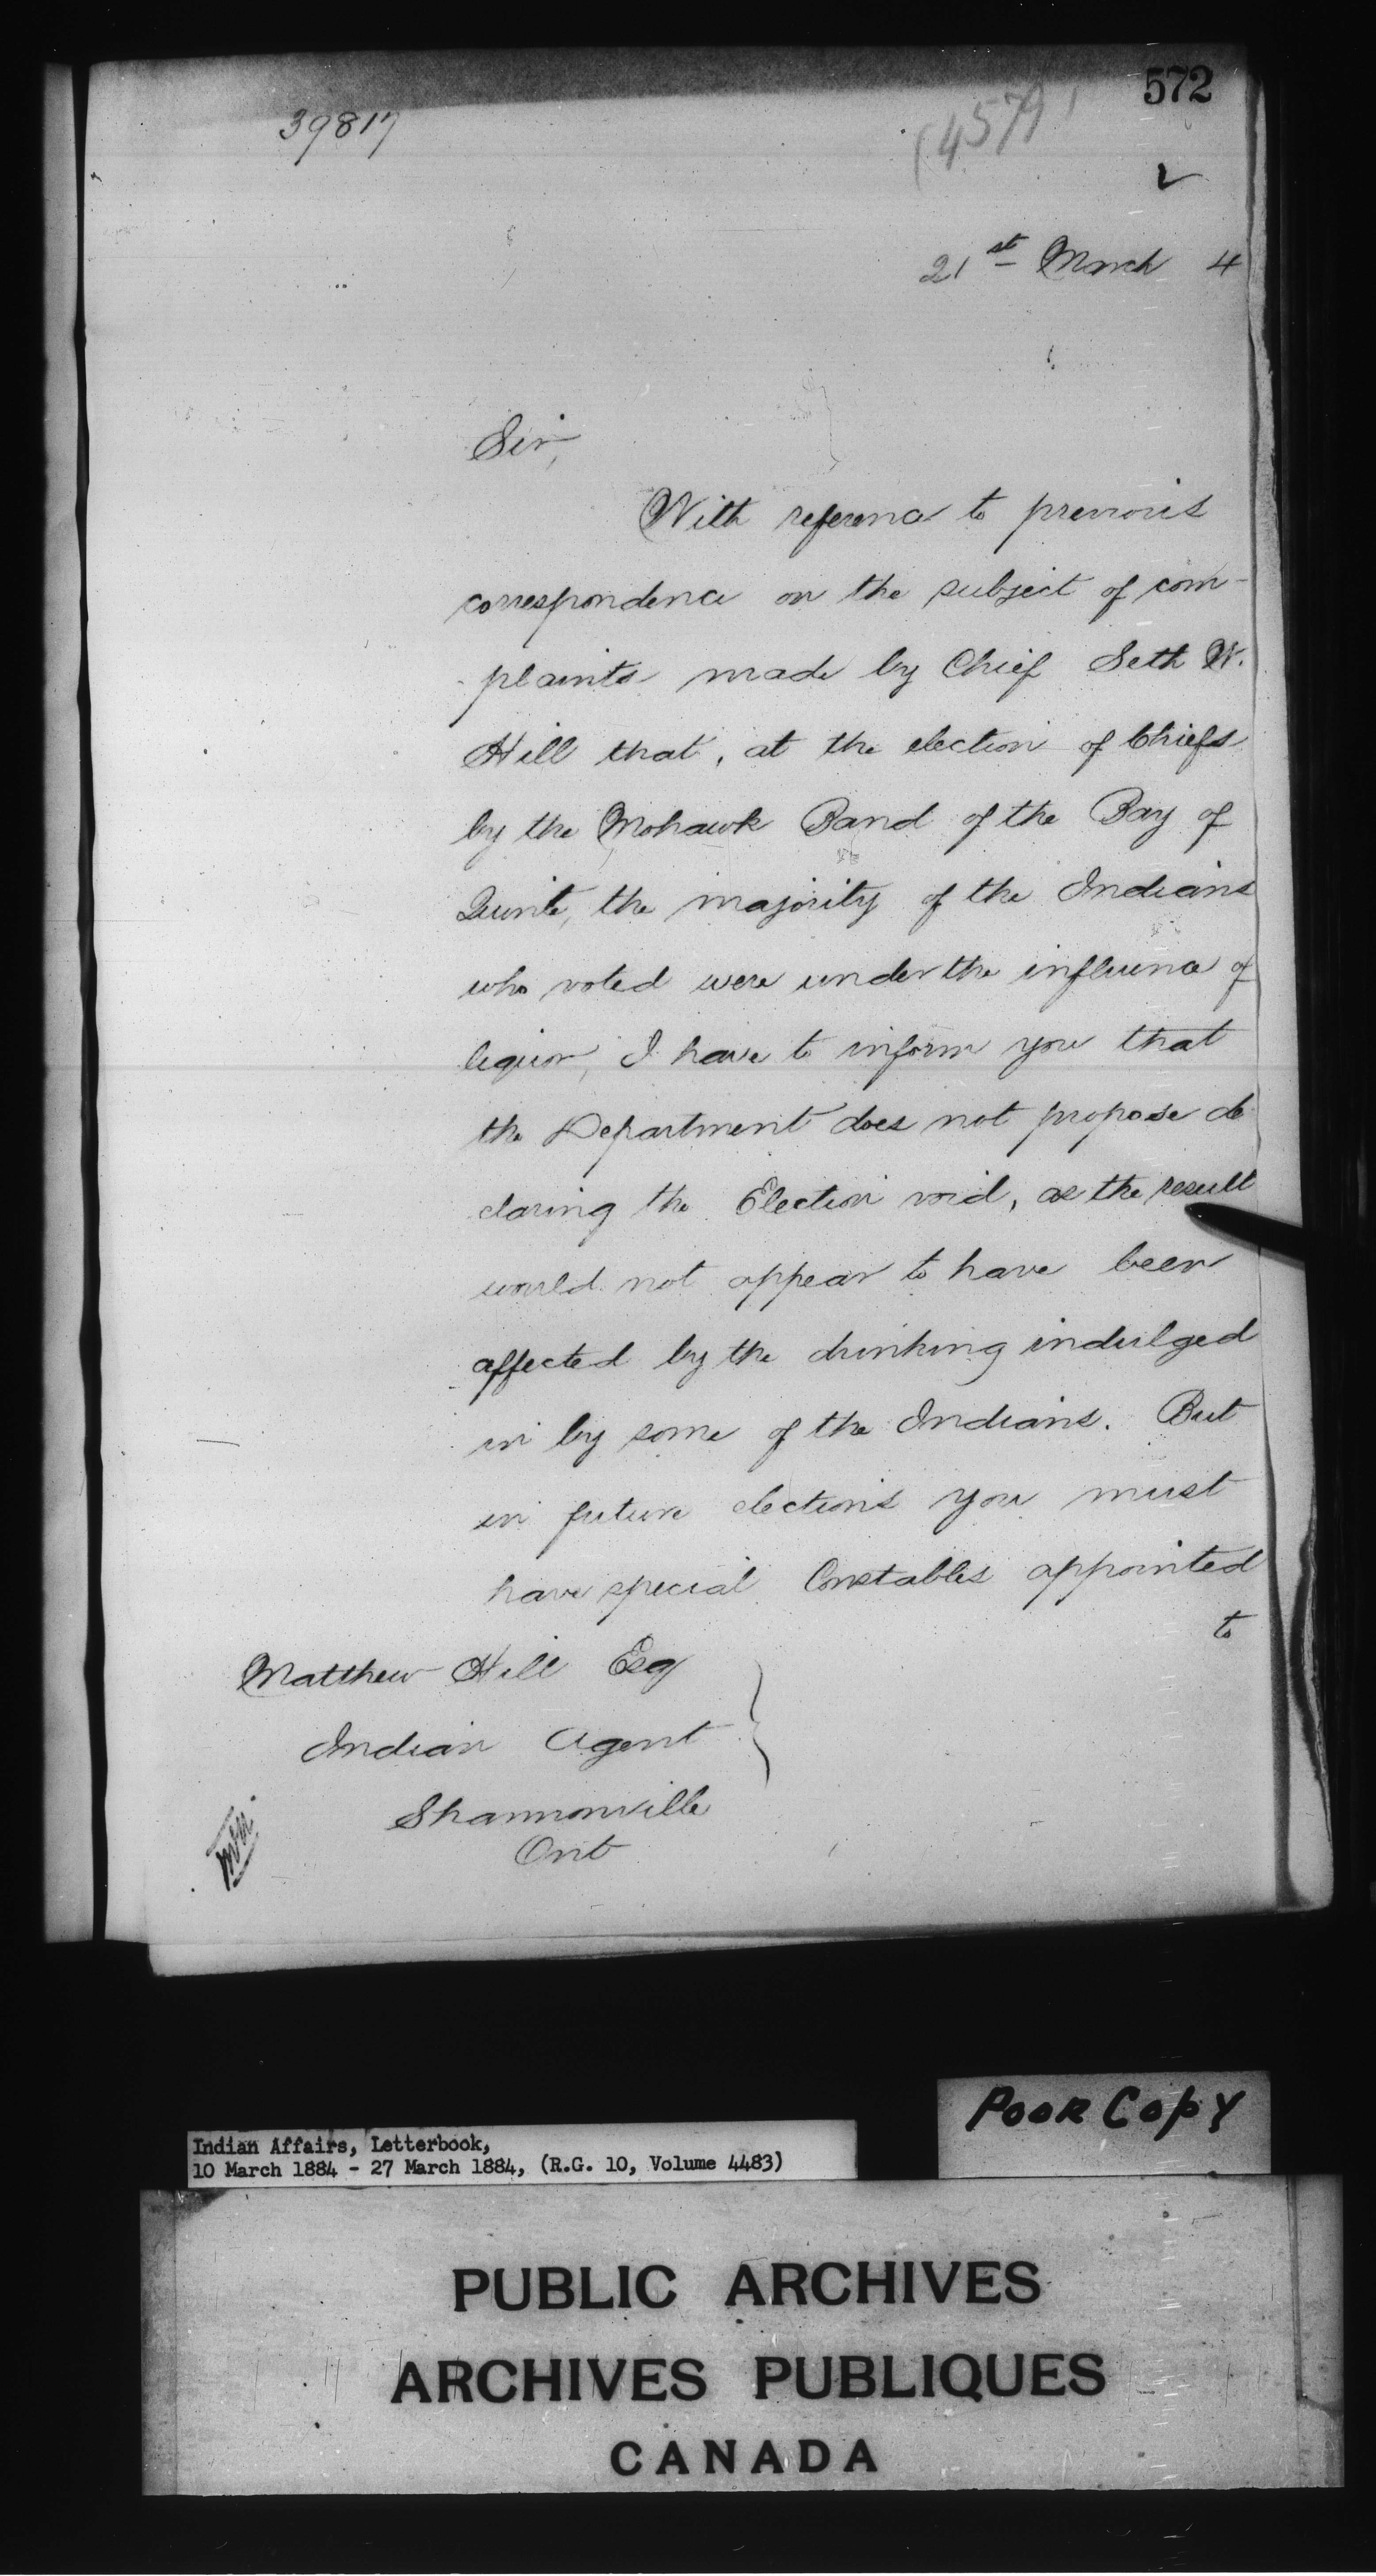 572
39817
(457)
21st March 4
Sir,
With reference to previous
correspondence on the subject of com-
plaints made by Chief Seth W.
Hill that, at the election of Chiefs
by the Mohawk Band of the Bay of
Quinte, the majority of the Indians
who voted were under the influence of
liquor, I have to inform you that
the Department does not propose de
claring the Election void, as the result
would not appear to have been
affected by the drinking indulged
in by some of the Indians. But
in future elections you must
have special Constables appointed
to
Matthew Hill Esq
Indian Agent
Shannonville
Ont
Poor Copy
Indian Affairs, Letterbook,
10 March 1884 - 27 March 1884, (R.G. 10, Volume 4483)
PUBLIC ARCHIVES
ARCHIVES PUBLIQUES
CANADA